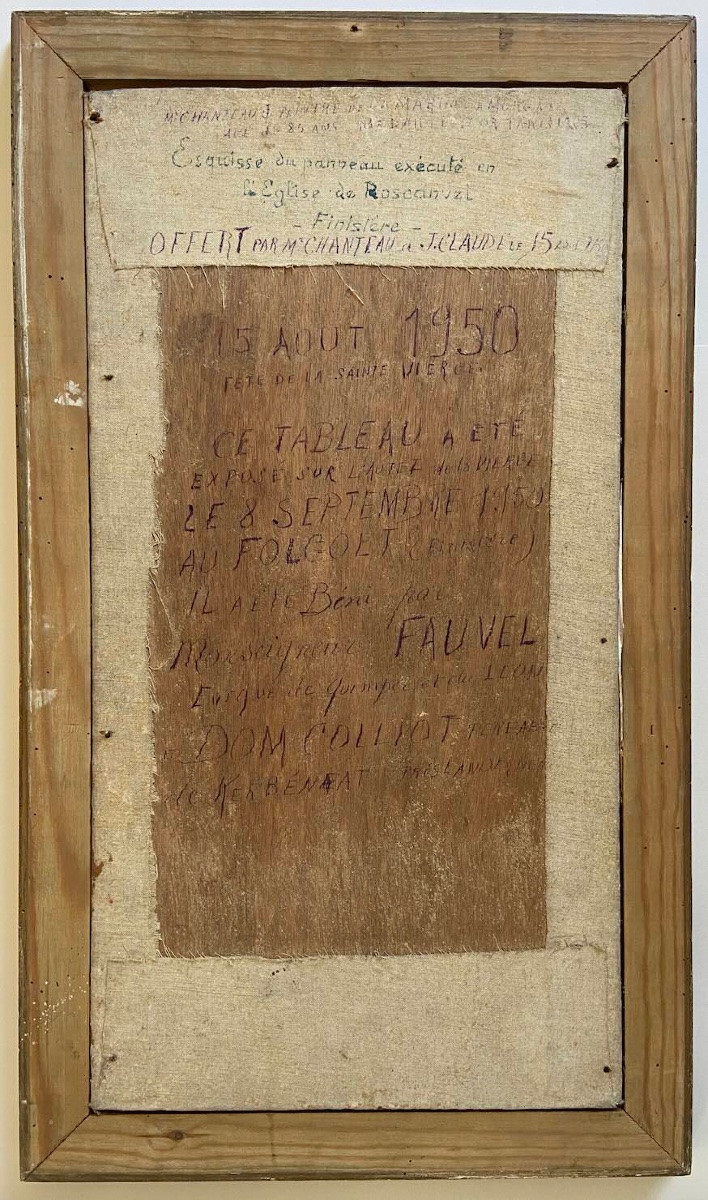 Mr CHANTEAU PEINTRE DE LA MARINE A MORGAT
AGÉ DE 85 ANS
Esquisse du panneau exécuté en
l'Eglise de Roscanvel
- Finistère -
OFFERT PAR Mr CHANTEAU a J. CLAUDE LE 15
15 AOUT 1950
FETE DE LA SAINTE VIERGE
CE TABLEAU A ETÉ
EXPOSE SUR L'AUTEL de la VIERGE
LE 8 SEPTEMBRE 1950
AU FOLGOET (Finistère)
IL A ETE Béni par
Monseigneur FAUVEL
Evêque de Quimper et du LEON
DOM COLLIOT PERE ABBE
de KERBÉNEAT PRES LANDIVISIAU